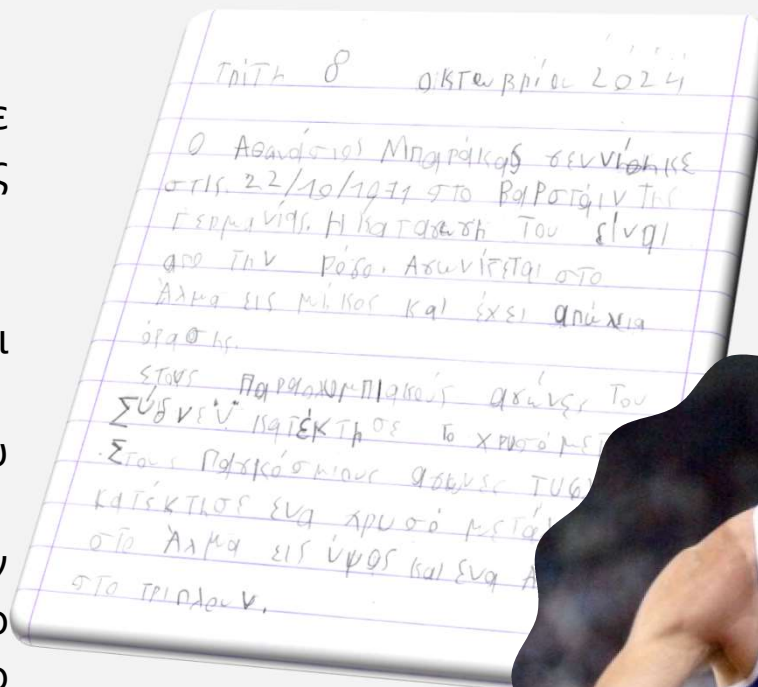 ε
ς
ι
υ
ν
ο
ο
Τρίτη 8 οκτωβρίου 2024
Ο Αθανάσιος Μπαράκας γεννίθηκε
στις. 22/10/1971 στο Βαρσταιν της
Γερμανίας. Η καταγωγή του είναι
από την Ρόδο. Αγωνίζεται στο
Άλμα εις μίκος και έχει απώλια
όρασης.
Στους Παραολυμπιακούς αγώνες του
Σύδνεϋ κατέκτησε το χρυσό μετ
Στους Παγκόσμιους αγώνες τυφ
κατέκτησε ένα χρυσό μετά
στο Άλμα εις ύψος και ένα
στο τριπλουν.